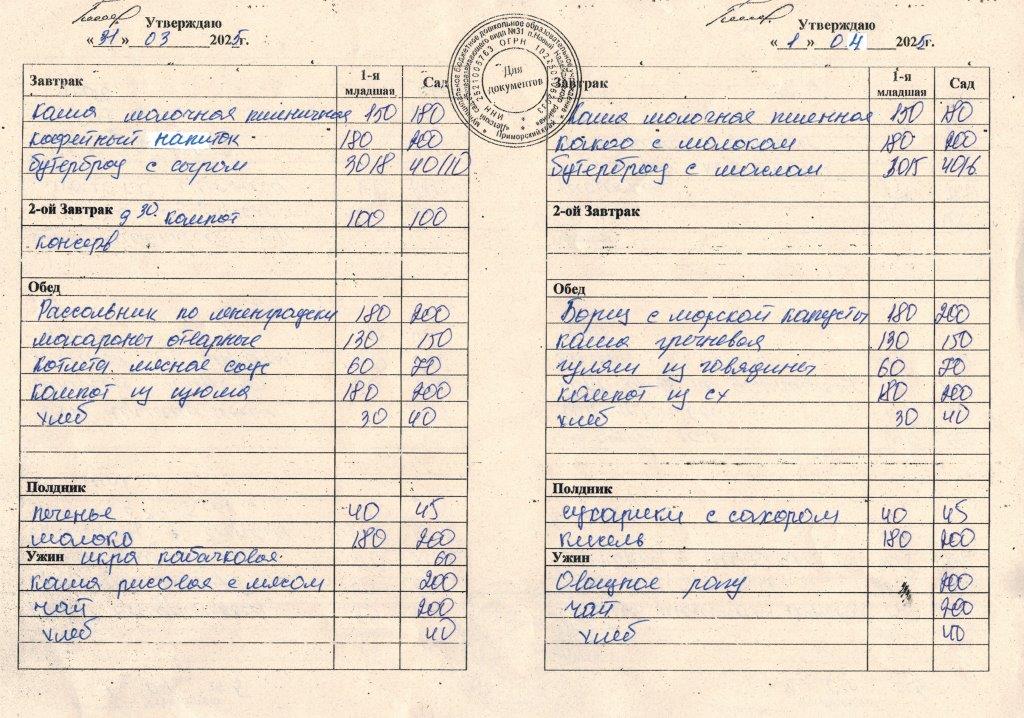 Утверждаю
«31» 03 2025г.
Завтрак 1-я младшая Сад
каша молочная пшеничная 150 180
кофейный напиток 180 200
бутерброд с сыром 30/8 40/10
2-ой Завтрак 9 30 компот 100 100
консерв
Обед
Рассольник по ленинградски 180 200
макароны отварные 130 150
котлета мясная соус 60 70
компот из изюма 180 200
хлеб 30 40
Полдник
печенье 40 45
молоко 180 200
Ужин икра кабачковая 60
каша рисовая с мясом 200
чай 200
хлеб 40
Для документов
Утверждаю
«1» 04 2025г.
Завтрак 1-я младшая Сад
каша молочная пшенная 150 180
какао с молоком 180 200
бутерброд с маслом 30/5 40/6
2-ой Завтрак
Обед
Борщ с морской капустой 180 200
каша гречневая 130 150
гуляш из говядины 60 70
компот из сх 180 200
хлеб 30 40
Полдник
сухарики с сахаром 40 45
кисель 180 200
Ужин
Овощное рагу 200
чай 200
хлеб 40